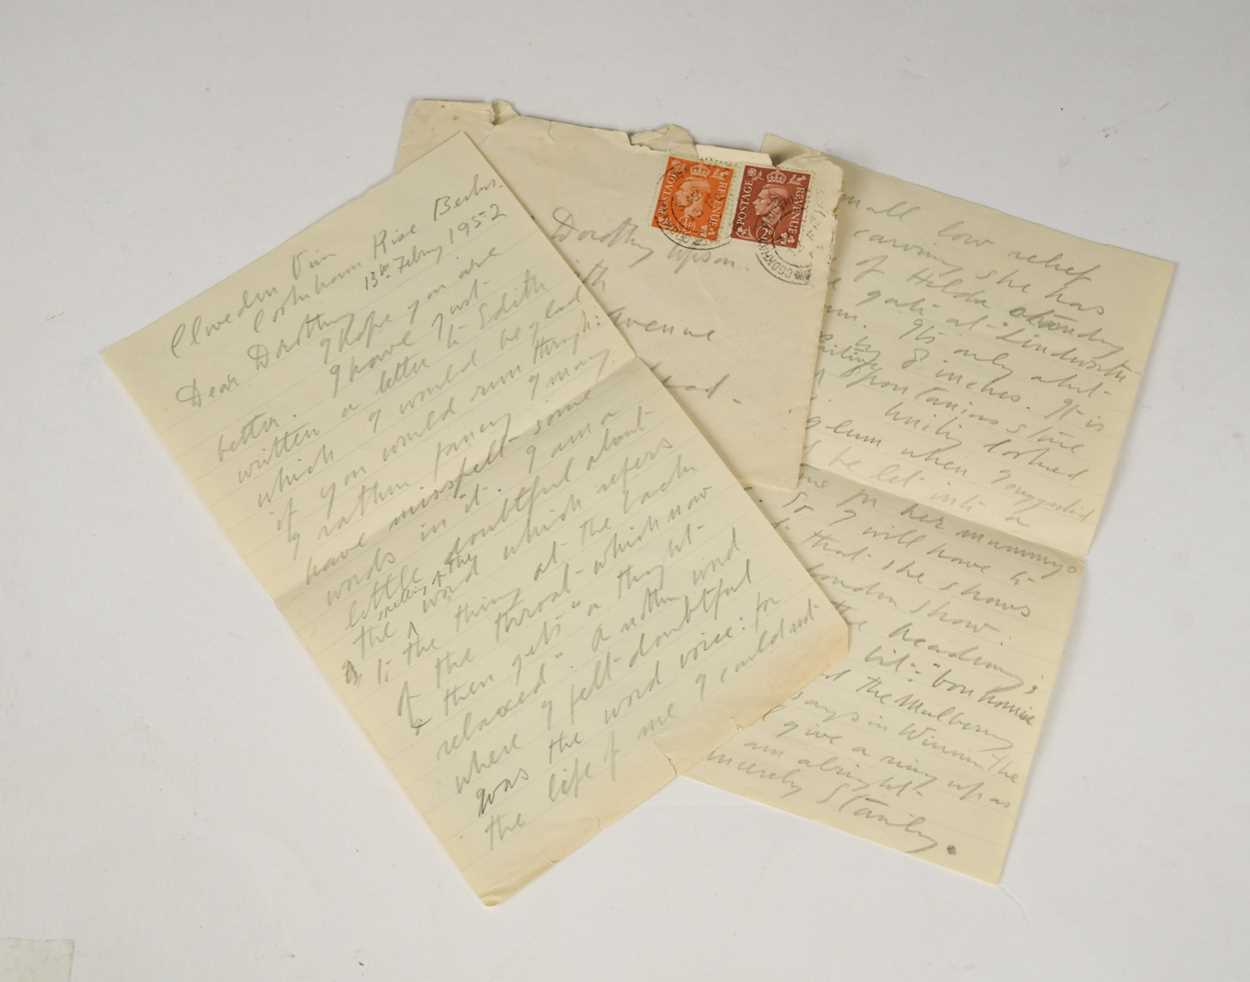 Cliveden View
Cookham Rise Berks.
13th Febury 1952
Dear Dorothy
I hope you are
better. I have just
written a letter to Edith
which I would be glad
if you would run through:
I rather fancy I may
have misspelt some
words in it. I am a
little doubtful about
the word which refers
to the thing at the back
of the throat - which now
& then gets "a thught
relaxed". Another word
where I felt doubtful
was the word voice: for
the life of me I could not
Dorothy
Avenue
POSTAGE REVENUE
POSTAGE REVENUE
small low relief
carving she has
of Hilda standing
gate at Lindworth
Its only about
by 8 inches. It is
stone
Unity looked
glum when I suggested
be let into a
for her mummy.
So I will have to
that she shows
London show.
the headings
bit - "bonhomie
the Mulberry
says in Winnie the
give a ring up as
am alright.
sincerely Stanley.